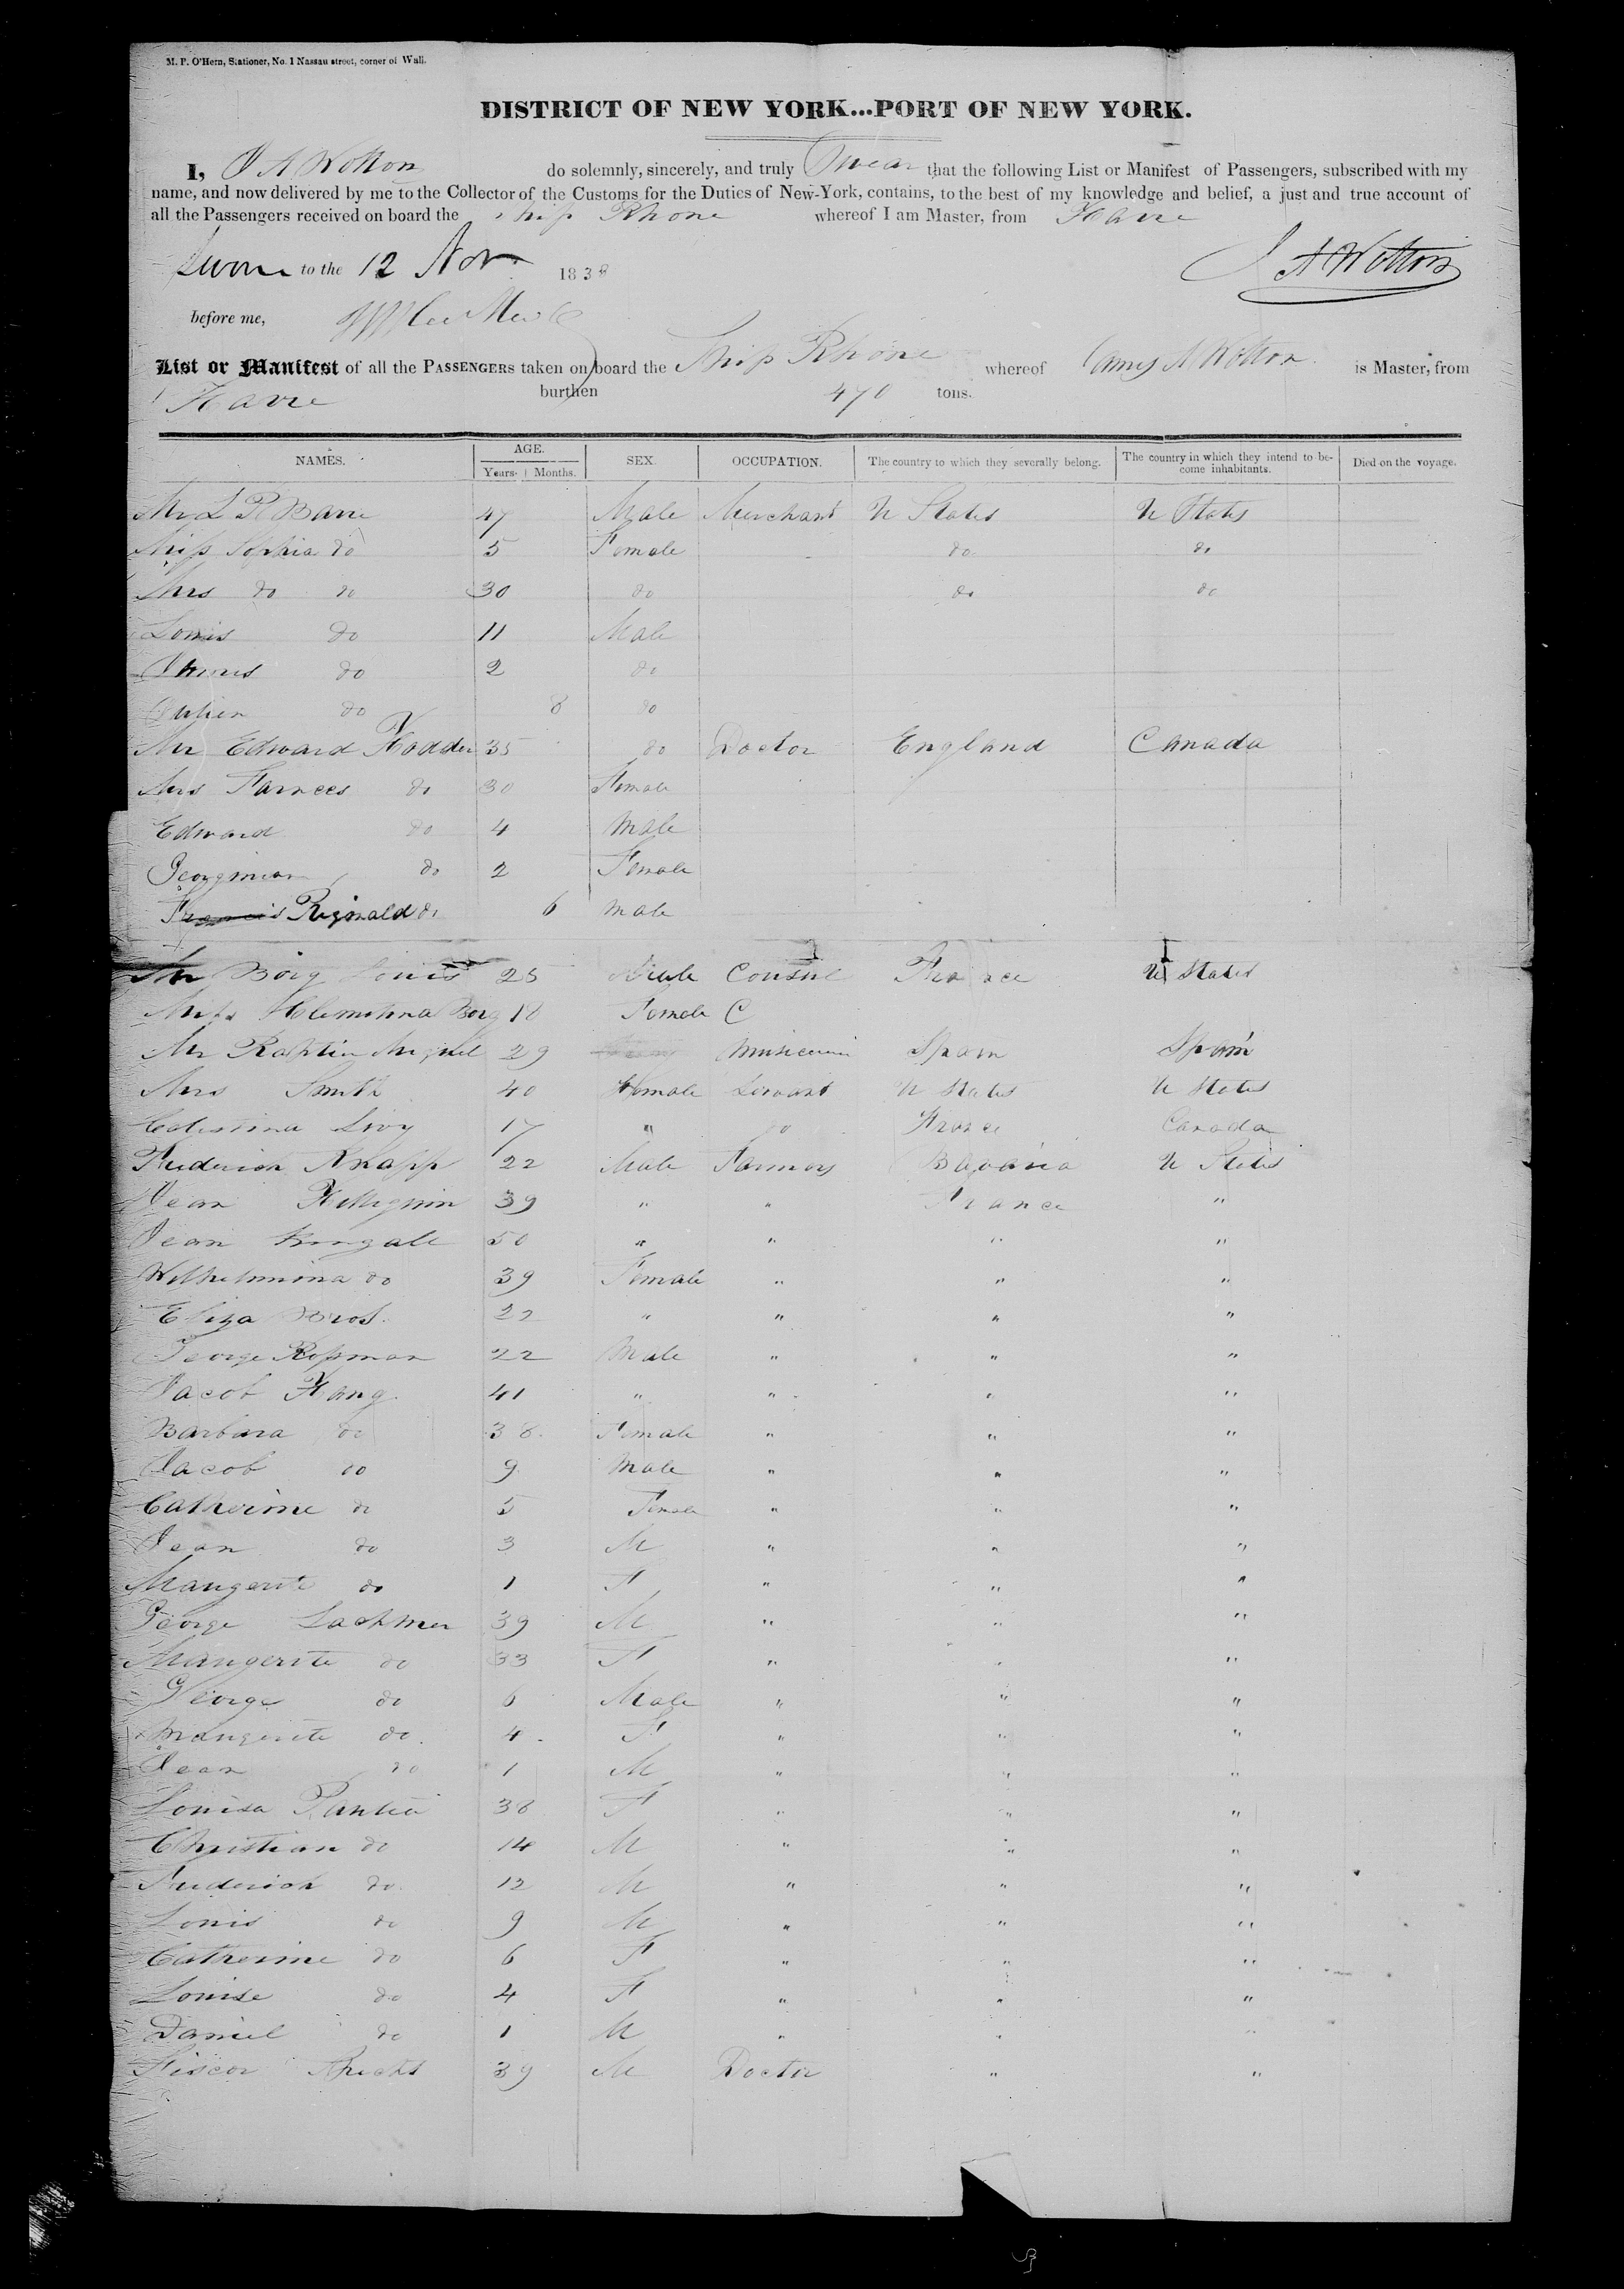 M. P. O'Hern, Stationer, No. 1 Nassau street, corner of Wall.
DISTRICT OF NEW YORK...PORT OF NEW YORK.
I, J A Wotton do solemnly, sincerely, and truly Swear that the following List or Manifest of Passengers, subscribed with my
name, and now delivered by me to the Collector of the Customs for the Duties of New-York, contains, to the best of my knowledge and belief, a just and true account of
all the Passengers received on board the Ship Rhone whereof I am Master, from Havre
Sworn to the 12 Nov 1838 J A Wotton
before me,
List or Manifest of all the PASSENGERS taken on board the Ship Rhone whereof James A Wotton is Master, from
Havre burthen 470 tons.
NAMES. AGE. Years. Months. SEX. OCCUPATION. The country to which they severally belong. The country in which they intend to become inhabitants. Died on the voyage.
Mr L R Barre 47 Male Merchant U States U States
Miss Sophia do 5 Female do do
Mrs do do 30 do do do
Louis do 11 Male
do 2 do
Julien do 8 do
Mr Edward Hodder 35 do Doctor England Canada
Mrs Farnces do 30 Female
Edward do 4 Male
Georgiana do 2 Female
Francis Riginald do 6 Male
Mr Borg Louis 25 Male Consul France U States
Miss Clementina Borg 18 Female C
Mr Miguel 29 Musician Spain Spain
Mrs Smith 40 Female Servant U States U States
Celestina Livy 17 " do France Canada
Frederick Knapp 22 Male Farmers Bavaria U States
Jean 39 " " France "
Jean 50 " " " "
Wilhelmina do 39 Female " " "
Eliza Brod. 22 " " " "
George Rossman 22 Male " " "
Jacob Hang 41 " " " "
Barbara do 38 Female " " "
Jacob do 9 Male " " "
Catherine do 5 Female " " "
Jean do 3 M " " "
Mangerite do 1 F " " "
George Lachmer 39 M " " "
Mangerite do 33 F " " "
George do 6 Male " " "
Mangerite do 4 F " " "
Jean do 1 M " " "
Louisa 38 F " " "
Christian do 14 M " " "
Frederick do 12 M " " "
Louis do 9 M " " "
Catherine do 6 F " " "
Louise do 4 F " " "
Daniel do 1 M " " "
39 M Doctor " "